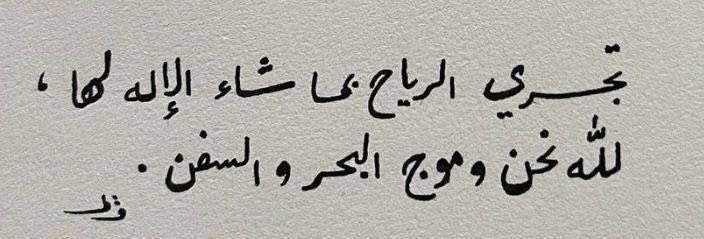 تجري الرياح بما شاء الإله لها ،
لله نحن وموج البحر والسفن .